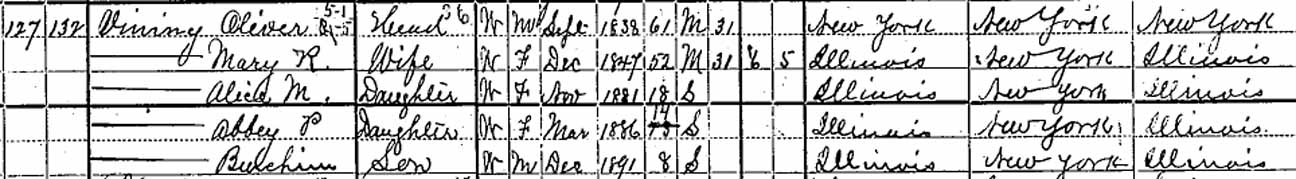 127 132 Vining Oliver Head W M Sept 1838 61 M 31 New York New York New York
Mary R. Wife W F Dec 1847 52 M 31 6 5 Illinois New York Illinois
Alice M. Daughter W F Nov 1881 18 S Illinois New York Illinois
Abbey P Daughter W F Mar 1886 14 S Illinois New York Illinois
Son W M Dec 1891 8 S Illinois New York Illinois